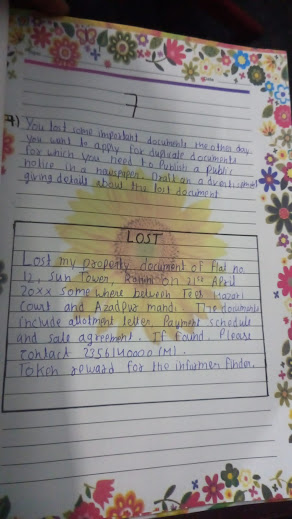 7
7) You lost some important documents the other day
You want to apply for duplicate documents
for which you need to Publish a public
notice in a newspaper. Draft an advertisement
giving details about the lost document
LOST
Lost my property document of Flat no.
12, Sun Tower, Rohini on 21st April
20xx some where between Tees Hazari
Court and Azadpur mandi. The documents
include allotment letter, Payment schedule
and sale agreement. If found, Please
contact 2356140000 (M).
Token reward for the informer finder.